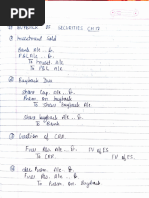 ① BUYBACK OF SECURITIES CH-17
① Investment Sold
Bank A/c. Dr.
P&L A/c. Dr.
To Invest. A/c
To P&L A/c
② Buyback Due
Share Cap. A/c. Dr.
Prem. on buyback
To Share buyback A/c
Share buyback A/c. Dr.
To Bank
③ Creation of CRR
Free Res. A/c. Dr. FV of ES
To CRR FV of ES
④ Prem A/c. Dr.
Free Res. A/c. Dr.
To Prem on Buyback